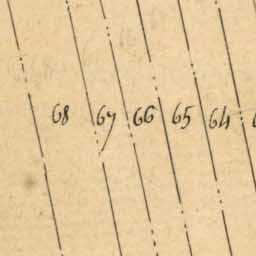 68 67 66 65 64